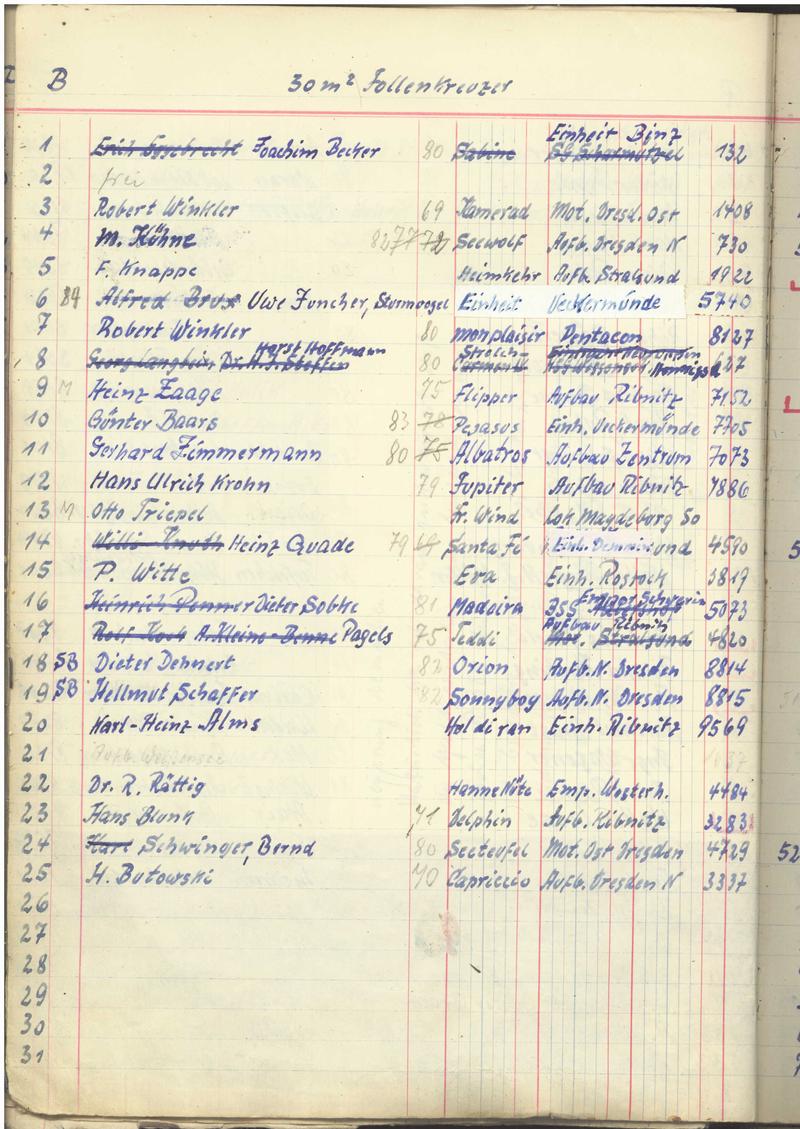 B 30m² Jollenkreuzer
Einheit Binz
1 Joachim Becker 80 Sabine SG Scharmützel 132
2 frei
3 Robert Winkler 69 Kamerad Mot. Dresd. Ost 1408
4 M. Köhne 82 77 72 Seewolf Aufb. Dresden N 730
5 F. Knappe Heimkehr Aufb. Stralsund 1922
6 84 Alfred Brux Uwe Juncher, Sturmvogel Einheit Ueckermünde 5740
7 Robert Winkler 80 monplaisir Pentacon 8127
Horst Hoffmann Strolch
8 Georg Langbein, Dr. H.J. Steffen 80 Carmen II 627
9 M Heinz Zaage 75 Flipper Aufbau Ribnitz 7152
10 Günter Baars 83 78 Pegasus Einh. Ueckermünde 7705
11 Gerhard Zimmermann 80 75 Albatros Aufbau Zentrum 7073
12 Hans Ulrich Krohn 79 Jupiter Aufbau Ribnitz 7886
13 M Otto Triepel K. Wind Lok Magdeburg So
14 Willi Knuth Heinz Quade 79 69 Santa Fé Einh. Demmin und 4590
15 P. Witte Eva Einh. Rostock 3819
Empor Schwerin
16 Heinrich Penner Dieter Sobke 81 Madeira BSG 5073
Aufbau Ribnitz
17 Rolf Kock A. Kleine-Benne Pagels 75 Teddi Mot. Stralsund 4820
18 SB Dieter Dehnert 82 Orion Aufb. N. Dresden 8814
19 SB Hellmut Schaffer 82 Sonnyboy Aufb. N. Dresden 8815
20 Karl-Heinz Alms Hol di ran Einh. Ribnitz 9569
21 Aufb. Weissensee
22 Dr. R. Rättig Hanne Nüte Emp. Wosterh. 4484
23 Hans Blunk 71 Delphin Aufb. Ribnitz 3283
24 Karl Schwinger, Bernd 80 Seeteufel Mot. Ost Dresden 4729
25 H. Butowski 70 Capriccio Aufb. Dresden N 3337
26
27
28
29
30
31
52